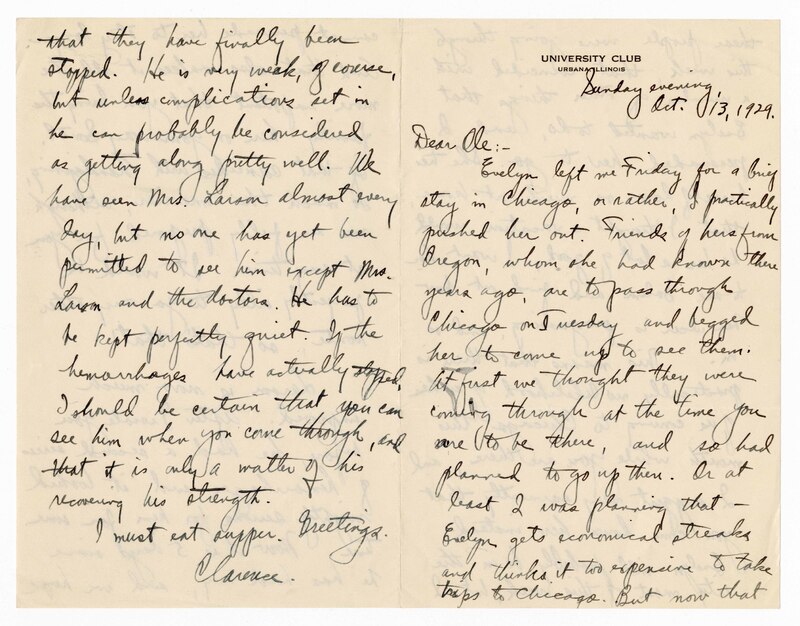 UNIVERSITY CLUB
URBANA, ILLINOIS
Sunday evening,
Oct. 13, 1929.
Dear Ole:-
Evelyn left me Friday for a brief
stay in Chicago, or rather, I practically
pushed her out. Friends of hers from
Oregon, whom she had known there
years ago, are to pass through
Chicago on Tuesday and begged
her to come up to see them.
At first we thought they were
coming through at the time you
were to be there, and so had
planned to go up then. Or at
least I was planning that —
Evelyn gets economical streaks
and thinks it too expensive to take
trips to Chicago. But now that
that they have finally been
stopped. He is very weak, of course,
but unless complications set in
he can probably be considered
as getting along pretty well. We
have seen Mrs. Larson almost every
day, but no one has yet been
permitted to see him except Mrs.
Larson and the doctors. He has to
be kept perfectly quiet. If the
hemorrhages have actually stopped,
I should be certain that you can
see him when you come through, and
that it is only a matter of his
recovering his strength.
I must eat supper. Greetings.
Clarence.